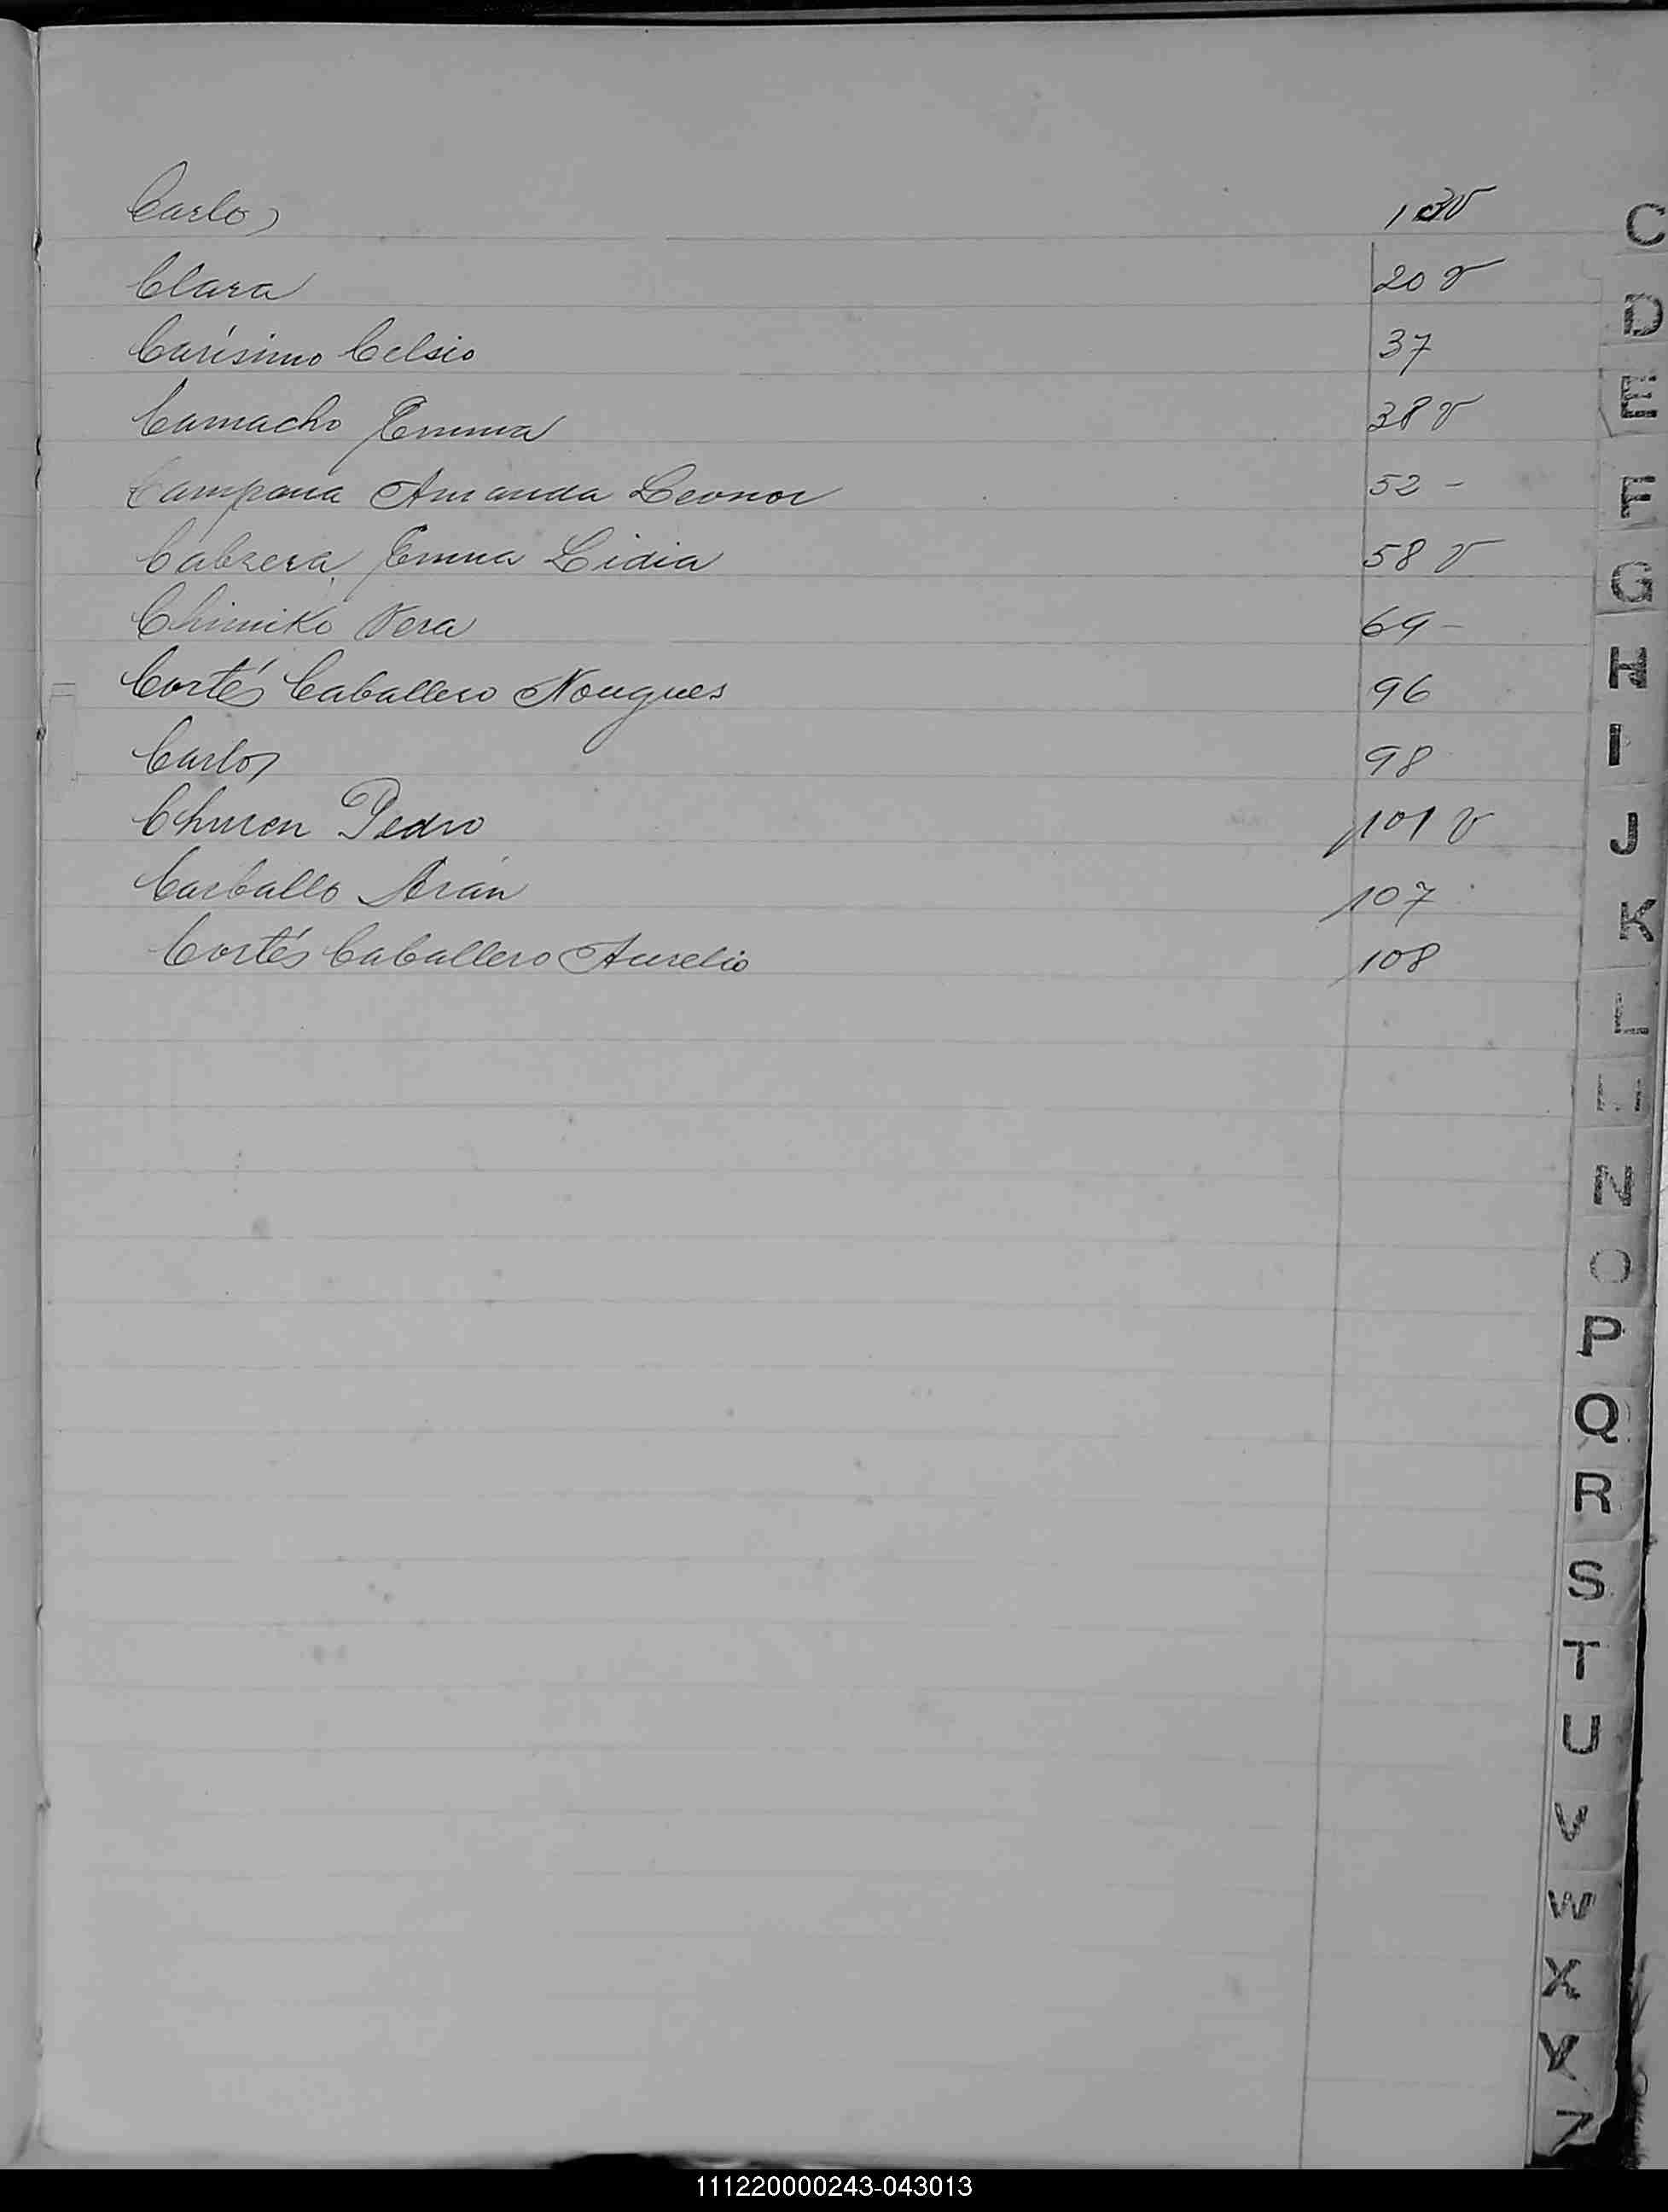 Carlos 13v
Clara 20 v
Carísimo Celsio 37
Camacho Emma 38 v
Campana Amanda Leonor 52 -
Cabrera Emma Lidia 58 v
Chimiko Vera 69 -
Cortés Caballero Nougues 96
Carlos 98
Pedro 101 v
Carballo Arán 107
Cortés Caballero Aurelio 108
C
D
E
F
G
H
I
J
K
L
N
O
P
Q
R
S
T
U
V
W
X
Y
Z
111220000243-043013